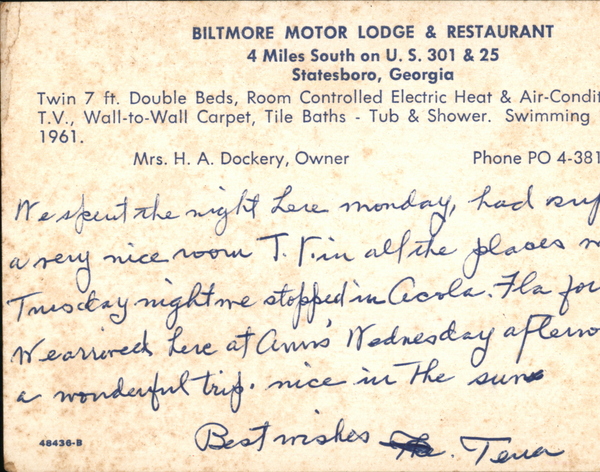 BILTMORE MOTOR LODGE & RESTAURANT
4 Miles South on U. S. 301 & 25
Statesboro, Georgia
Twin 7 ft. Double Beds, Room Controlled Electric Heat & Air-Condit
T.V., Wall-to-Wall Carpet, Tile Baths - Tub & Shower. Swimming
1961.
Mrs. H. A. Dockery, Owner Phone PO 4-381
We spent the night here monday, had sup
a very nice room T.V. in all the places
Tuesday night we stopped in Fla for
We arrived here at Ann's Wednesday afterno
a wonderful trip. nice in the sun
48436-B
Best wishes